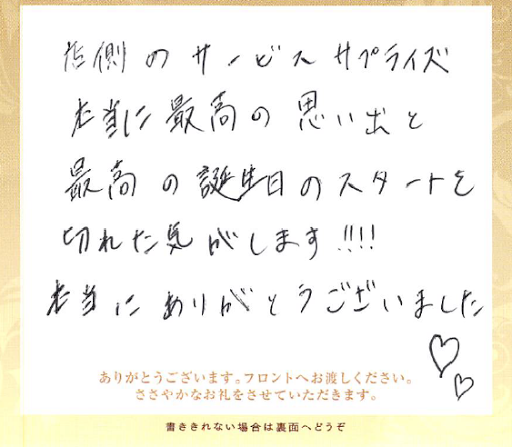 店側のサービスサプライズ
本当に最高の思い出と
最高の誕生日のスタートを
切れた気がします!!!!
本当にありがとうございました
♡♡
ありがとうございます。フロントへお渡しください。
ささやかなお礼をさせていただきます。
書ききれない場合は裏面へどうぞ